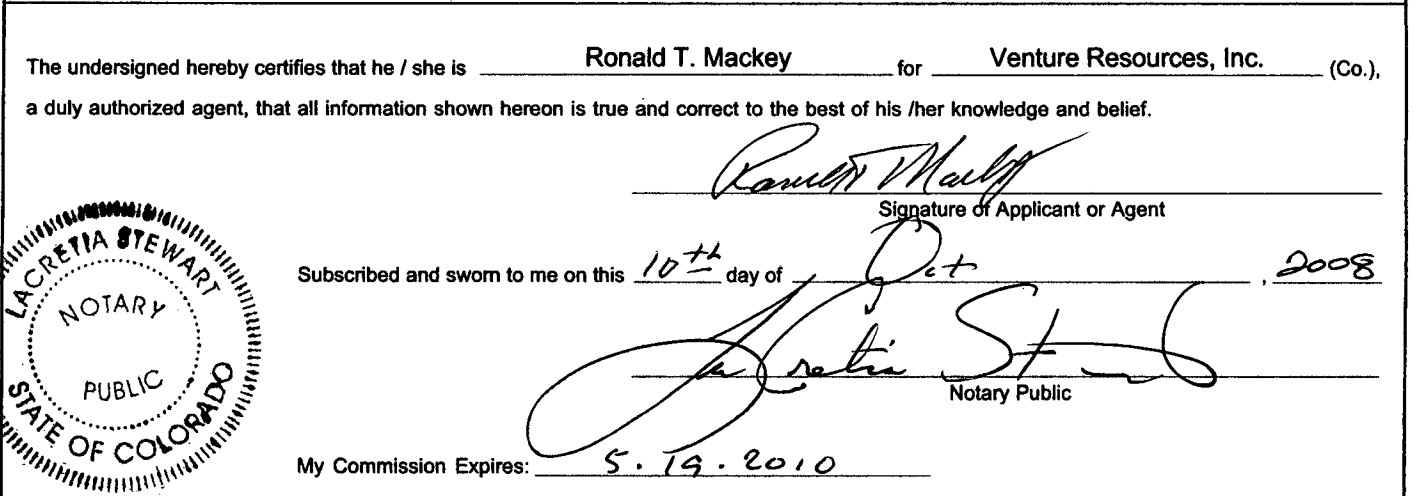 The undersigned hereby certifies that he / she is Ronald T. Mackey for Venture Resources, Inc. (Co.),
a duly authorized agent, that all information shown hereon is true and correct to the best of his /her knowledge and belief.
Ronald T Mackey
Signature of Applicant or Agent
Subscribed and sworn to me on this 10th day of Oct , 2008
LaCretia Stewart
Notary Public
My Commission Expires: 5.19.2010
LACRETIA STEWART
NOTARY
PUBLIC
STATE OF COLORADO